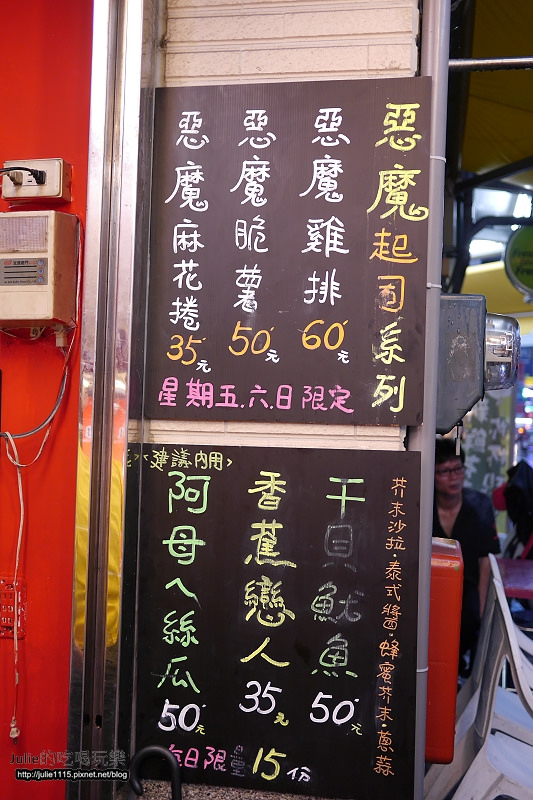 惡魔起司系列
惡魔雞排60元
惡魔脆薯50元
惡魔麻花捲35元
星期五.六.日限定
建議內用
芥末沙拉.泰式醬.蜂蜜芥末.蔥蒜
干貝魷魚50元
香蕉戀人35元
阿母ㄟ絲瓜50元
每日限量15份
Julie的吃喝玩樂
http://julie1115.pixnet.net/blog